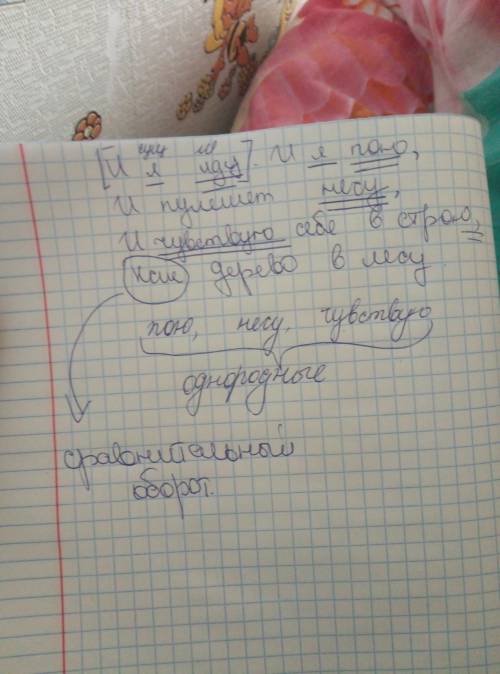 сущ гл
[И я иду]. И я пою,
И пулемет несу,
И чувствую себе в строю,
как дерево в лесу.
пою, несу, чувствую
однородные
сравнительный
оборот.